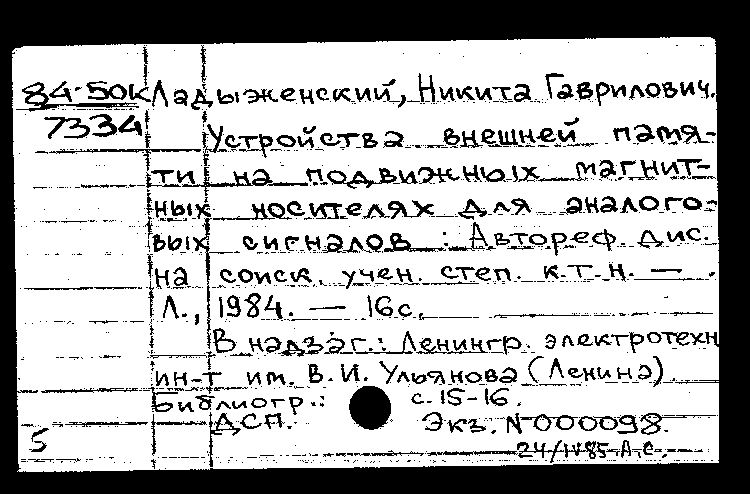 84-50к Ладыженский, Никита Гаврилович.
7334 Устройства внешней памя-
ти на подвижных магнит-
ных носителях для аналого-
вых сигналов : Автореф. дис.
на соиск. учен. степ. к.т.н. — .
Л., 1984. — 16 с.
В надзаг.: Ленингр. электротехн
ин-т им. В. И. Ульянова (Ленина).
Библиогр.: с. 15-16.
ДСП. Экз. N 000098.
5 24/IV85-А.С.